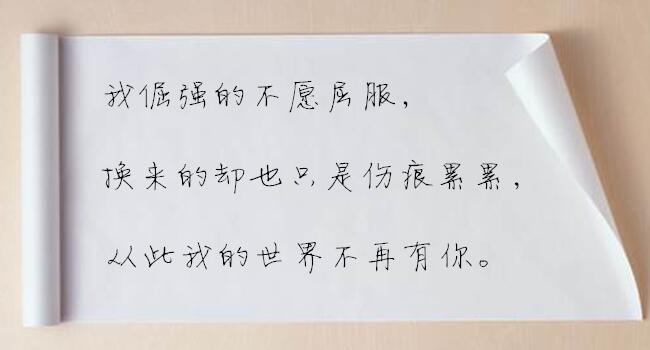 我倔强的不愿屈服，
换来的却也只是伤痕累累，
从此我的世界不再有你。